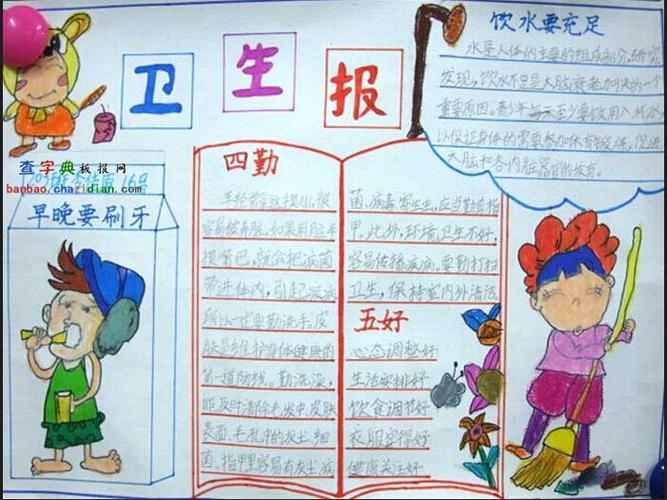 卫生报
饮水要充足
水是人体的主要的组成部分,研究
发现,饮水不足是大脑衰老加快的一个
重要原因。青少年每天至少要饮用八杯水
以保证身体的需要参加体育锻炼,促进
大脑和各内脏器官的发育。
查字典板报网
banbao.chazidian.com
16号
早晚要刷牙
四勤
手经常
容易被弄脏,如果用脏手
摸嘴巴,就会把病菌
带进体内,引起疾病
所以一定要勤洗手,皮
肤是维护身体健康的
第一道防线。勤洗澡,
能及时清除毛发中,皮肤
表面、毛孔中的灰尘、细
菌、指甲里容易有灰尘、病
菌、病毒寄生虫,应当勤剪指
甲。此外,环境卫生不好,
容易传播疾病。要勤打扫
卫生,保持室内外清洁
五好
心态调整好
生活安排好
饮食调节好
衣服穿得好
健康关注好